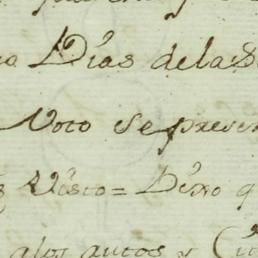 Dias dela
Voto se presen
Visto = Dixo q
alos autos y